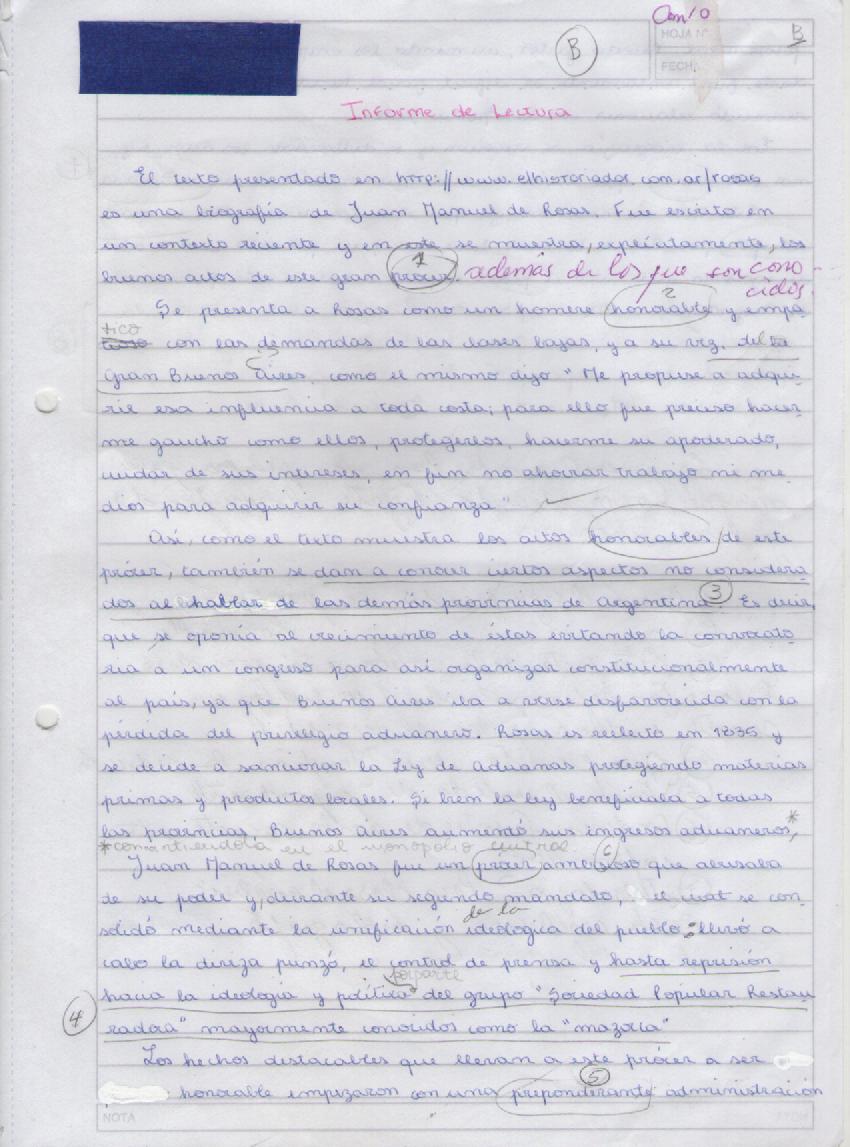 Com/0
HOJA Nº
B
B
FECHA
Informe de Lectura
El texto presentado en http://www.elhistoriador.com.ar/rosas
es una biografía de Juan Manuel de Rosas. Fue escrito en
un contexto reciente y en este se muestra, explícitamente, los
buenos actos de este gran prócer. además de los que son cono-
1
cidos.
2
Se presenta a Rosas como un hombre honorable y empá
tico
con las demandas de las clases bajas, y a su vez, de la
Gran Buenos Aires, como el mismo dijo "Me propuse a adqui-
rir esa influencia a toda costa; para ello fue preciso hacer-
me gaucho como ellos, protegerlos, hacerme su apoderado,
cuidar de sus intereses, en fin no ahorrar trabajo ni me-
dios para adquirir su confianza"
Así, como el texto muestra los actos honorables de este
prócer, también se dan a conocer ciertos aspectos no considera
dos al hablar de las demás provincias de Argentina. Es decir,
3
que se oponía al crecimiento de éstas evitando la convocato
ria a un congreso para así organizar constitucionalmente
al país, ya que Buenos Aires iba a verse desfavorecida con la
pérdida del privilegio aduanero. Rosas es reelecto en 1835 y
se decide a sancionar la Ley de Aduanas protegiendo materias
primas y productos locales. Si bien la ley beneficiaba a todas
las provincias, Buenos Aires aumentó sus ingresos aduaneros,*
*convirtiéndola en el monopolio central.
6
Juan Manuel de Rosas fue un prócer ambicioso que abusaba
de su poder y, durante su segundo mandato, el cual se con-
solidó mediante la unificación ideológica del pueblo: llevó a
de la
cabo la divisa punzó, el control de prensa y hasta represión
por parte
hacia la ideología y política del grupo "Sociedad Popular Restau
radora" mayormente conocidos como la "mazorca"
4
Los hechos destacables que llevan a este prócer a ser
5
honorable empezaron con una preponderante administración
NOTA